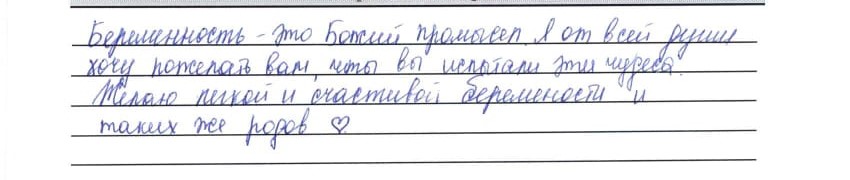 Беременность - это Божий промысел. Я от всей души
хочу пожелать вам, чты вы испытали эти чудеса.
Желаю легкой и счастивой беремености и
таких же родов ♡